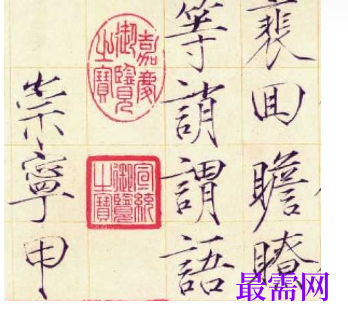 裵回瞻瞭
等誚謂語
嘉慶御覽之寶
宣統御覽之寶
崇寧甲
最需网